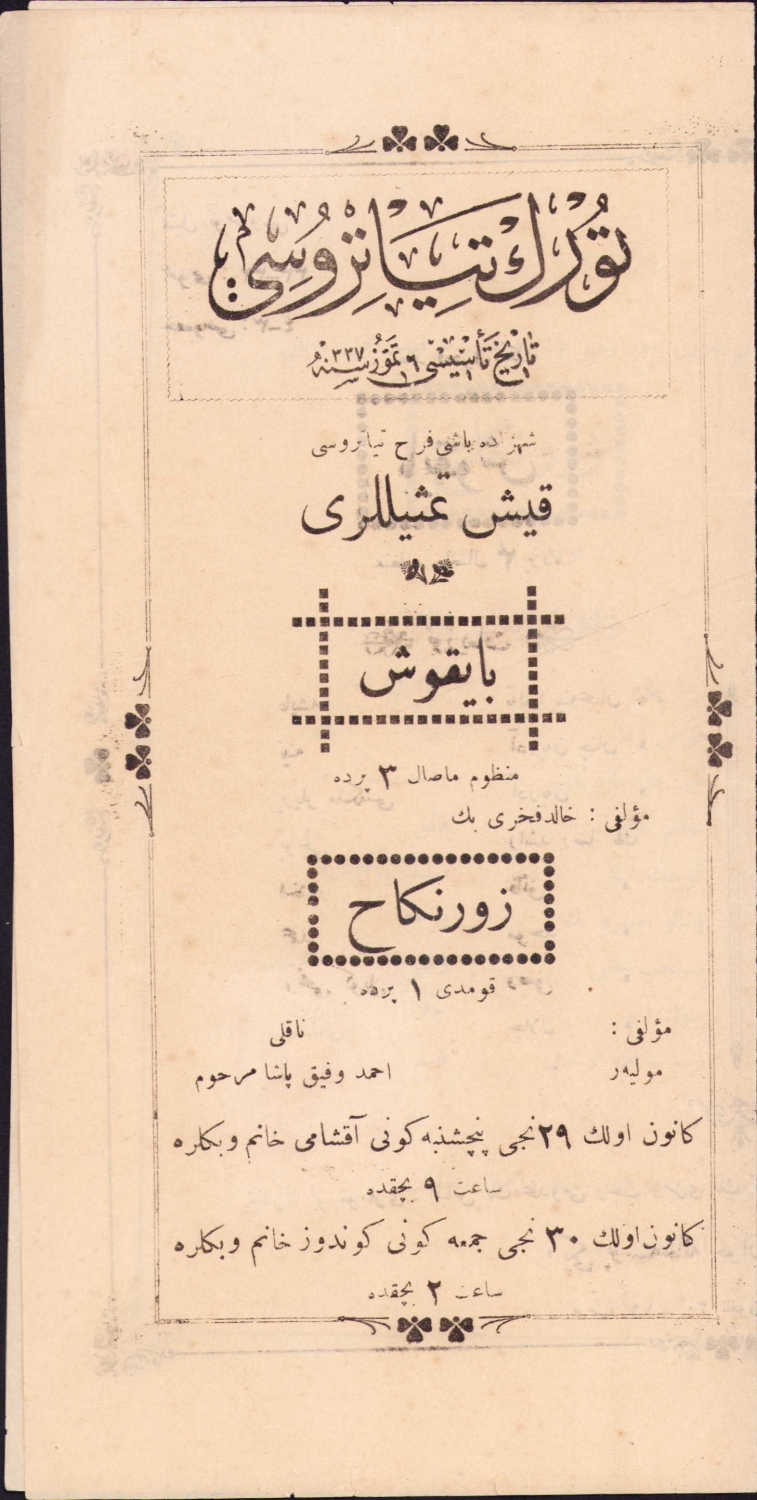 تورك تياتروسی
تاريخ تأسيسی ١٦ تموز سنه ٣٣٧
شهزاده باشی فرح تياتروسی
قيش تمثيللری
بايقوش
منظوم ماصال ٣ پرده
مؤلفی : خالد فخری بك
زور نكاح
قومدی ١ پرده
مؤلفی : ناقلی
موليه‌ر احمد وفيق پاشا مرحوم
كانون اولك ٢٩ نجی پنچشنبه كونی آقشامی خانم وبكلره
ساعت ٩ بچقده
كانون اولك ٣٠ نجی جمعه كونی كوندوز خانم وبكلره
ساعت ٢ بچقده